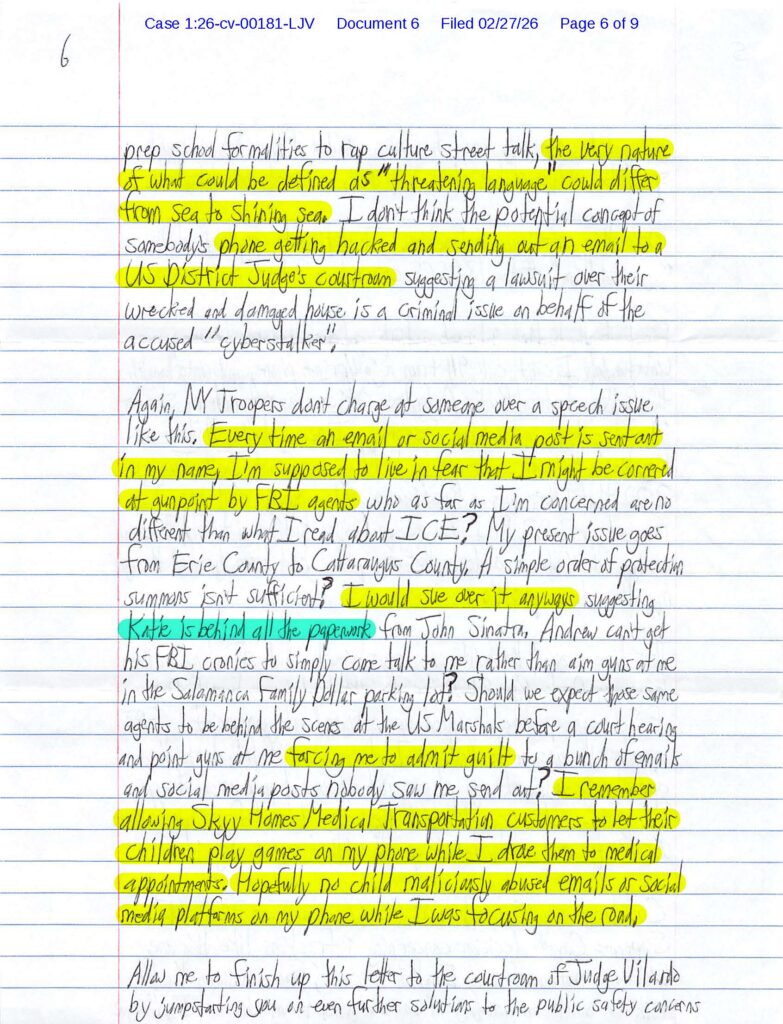 Case 1:26-cv-00181-LJV Document 6 Filed 02/27/26 Page 6 of 9
6
prep school formalities to rap culture street talk, the very nature
of what could be defined as "threatening language" could differ
from sea to shining sea. I don't think the potential concept of
somebody's phone getting hacked and sending out an email to a
US District Judge's courtroom suggesting a lawsuit over their
wrecked and damaged house is a criminal issue on behalf of the
accused "cyberstalker".
Again, NY Troopers don't charge at someone over a speech issue
like this. Every time an email or social media post is sent out
in my name, I'm supposed to live in fear that I might be cornered
at gunpoint by FBI agents who as far as I'm concerned are no
different than what I read about ICE? My present issue goes
from Erie County to Cattaraugus County. A simple order of protection
summons isn't sufficient? I would sue over it anyways suggesting
Katie is behind all the paperwork from John Sinatra. Andrew can't get
his FBI cronies to simply come talk to me rather than aim guns at me
in the Salamanca Family Dollar parking lot? Should we expect those same
agents to be behind the scenes at the US Marshals before a court hearing
and point guns at me forcing me to admit guilt to a bunch of emails
and social media posts nobody saw me send out? I remember
allowing Skyy Homes Medical Transportation customers to let their
children play games on my phone while I drove them to medical
appointments. Hopefully no child maliciously abused emails or social
media platforms on my phone while I was focusing on the road.
Allow me to finish up this letter to the courtroom of Judge Vilardo
by jumpstarting you on even further solutions to the public safety concerns